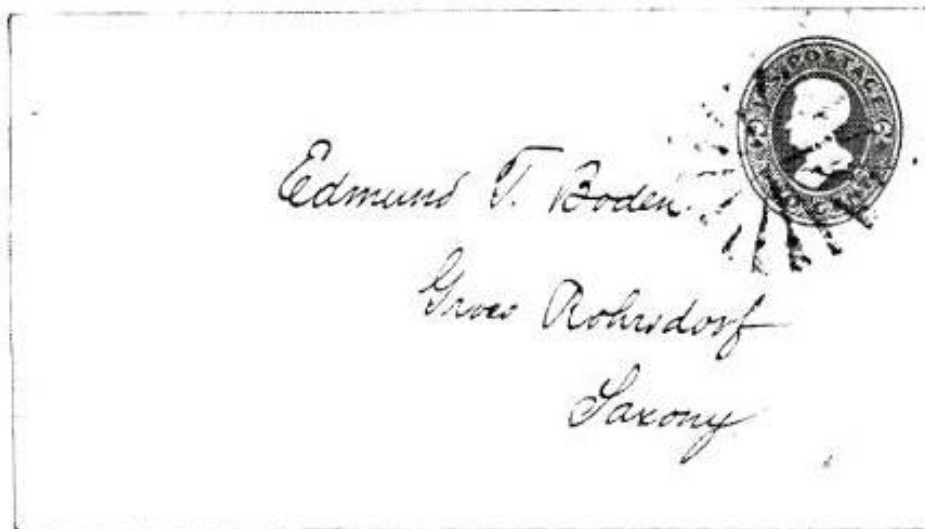 U.S. POSTAGE
TWO CENTS
2
2
Edmund T. Boden
Gross Rohrsdorf
Saxony